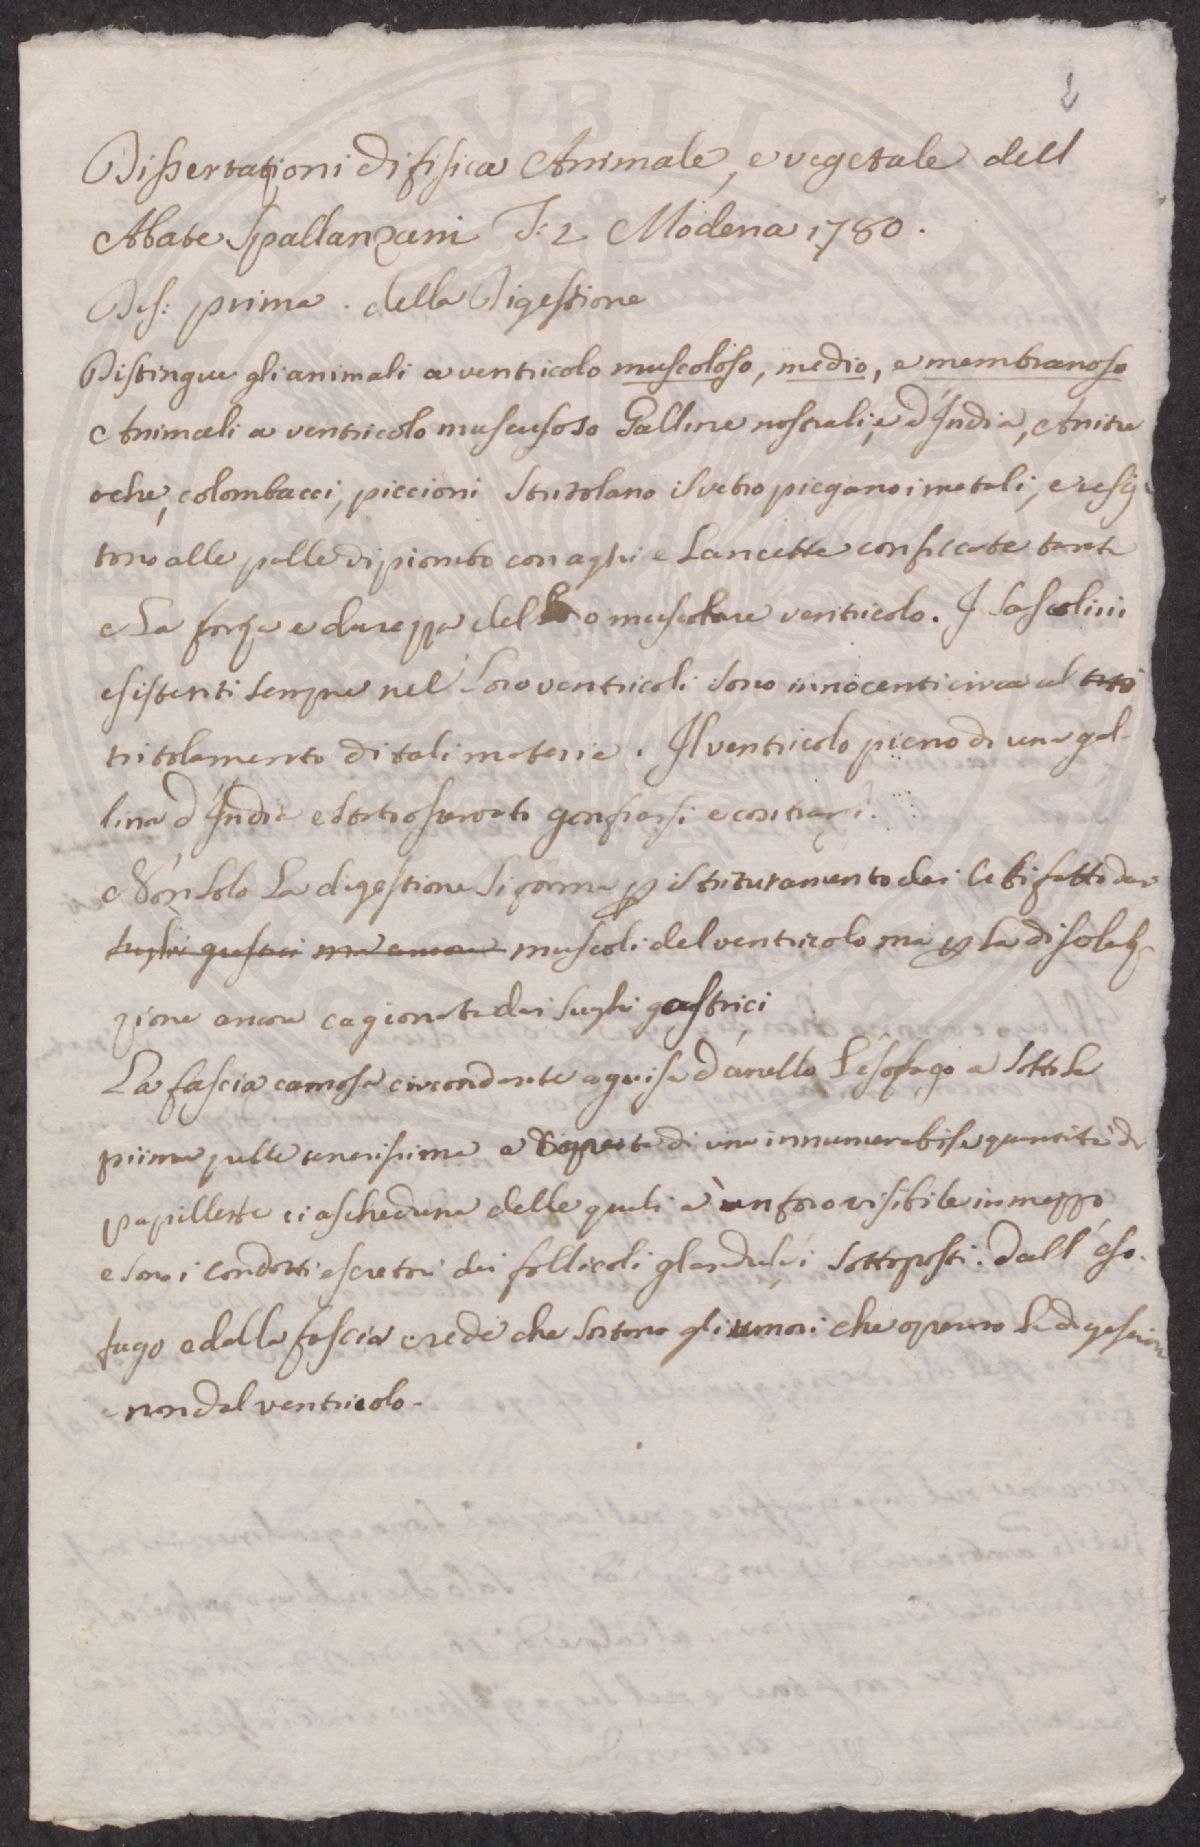 2
Dissertazioni di fisica Animale, e vegetale dell
Abate Spallanzani T: 2 Modena 1780.
Dis: prima. della Digestione
Distingue gli animali a ventricolo muscoloso, medio, e membranoso
Animali a ventricolo musculoso Galline nostrali, e d'India, Anitre
oche, colombacci, piccioni stritolano il vetro piegano i metali, e resis
tono alle palle di piombo con aghi e Lancette conficcate tanta
e La forza e durezza del muscolare ventricolo. I sassolini
esistenti sempre nel Loro ventricoli sono innocenti circa al
tritolamento di tali materie. Il ventricolo pieno di una gal-
lina d'India e stato osservato gonfiarsi e contrarsi.
Non solo La digestione si forma p il trituramento dei Cibi fatto dai
sughi gastrici ma ancora muscoli del ventricolo ma p La disolu
zione ancora cagionata dai sughi gastrici
La fascia carnosa circondante a guisa d'anello L'esofago a sotto La
prima pelle tenerissima e di una innumerabile quantità di
papillette ciascheduna delle quali à un foro visibile in mezzo
e sono i condotti escretori dei follicoli glandulosi sottoposti. Dall' eso-
fago e dalla fascia crede che sortono gli umori che operano La digestione
e non dal ventricolo.
PVBLIC